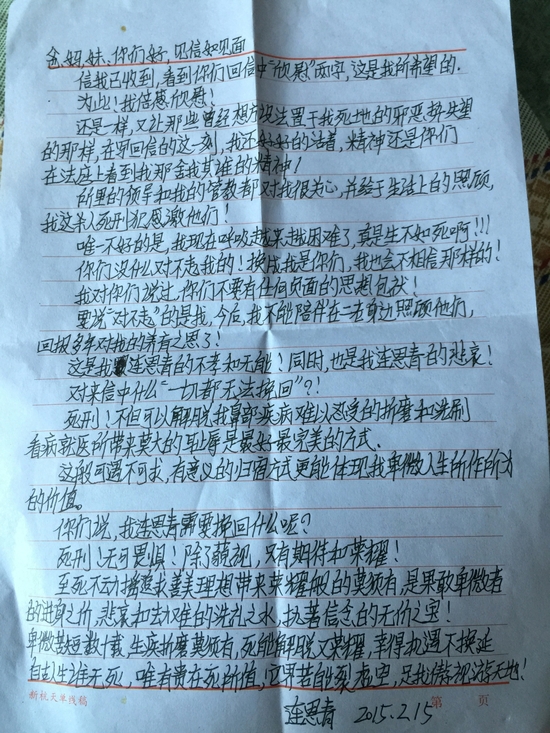 爸、妈、妹、你们好，见信如见面
信我已收到，看到你们回信中“欣慰”两字，这是我所希望的.
为此！我倍感欣慰！
还是一样，又让那些曾经想方设法置于我死地的邪恶势失望
的那样，在写回信的这一刻，我还好好的活着，精神还是你们
在法庭上看到我那舍我其谁的精神！
所里的领导和我的管教都对我很关心，并给于生活上的照顾，
我这杀人死刑犯感激他们！
唯一不好的是，我现在呼吸越来越困难了，真是生不如死啊！！！
你们没什么对不起我的！换成我是你们，我也会不相信那样的！
我对你们说过，你们不要有任何负面的思想包袱！
要说“对不起”的是我，今后，我不能陪伴在二老身边照顾他们，
回报多年对我的养育之恩了！
这是我连恩青的不孝和无能！同时，也是我连恩青的悲哀！
对来信中什么“一切都无法挽回”？
死刑！不但可以解脱我鼻部疾病难以忍受的折磨和洗刷
看病就医所带来莫大的耻辱是最好最完美的方式.
这般可遇不可求，有意义的归宿方式更能体现我卑微人生所作所为
的价值。
你们说，我连恩青需要挽回什么呢？
死刑！无可畏惧！除了藐视，只有期待和荣耀！
至死不动摇追求善美理想带来荣耀般的莫须有，是果敢卑微者
的进身之价，悲哀和去难的洗礼之水，执著信念的无价之宝！
卑微苦短数十载，生疾折磨莫须有，死能解脱又荣耀，幸得机遇不换避
自古人生谁无死，唯有贵在死所值，笑若能裂虚空，足我傲视游天地！
连恩青 2015.2.15
新杭天单线稿 第 页